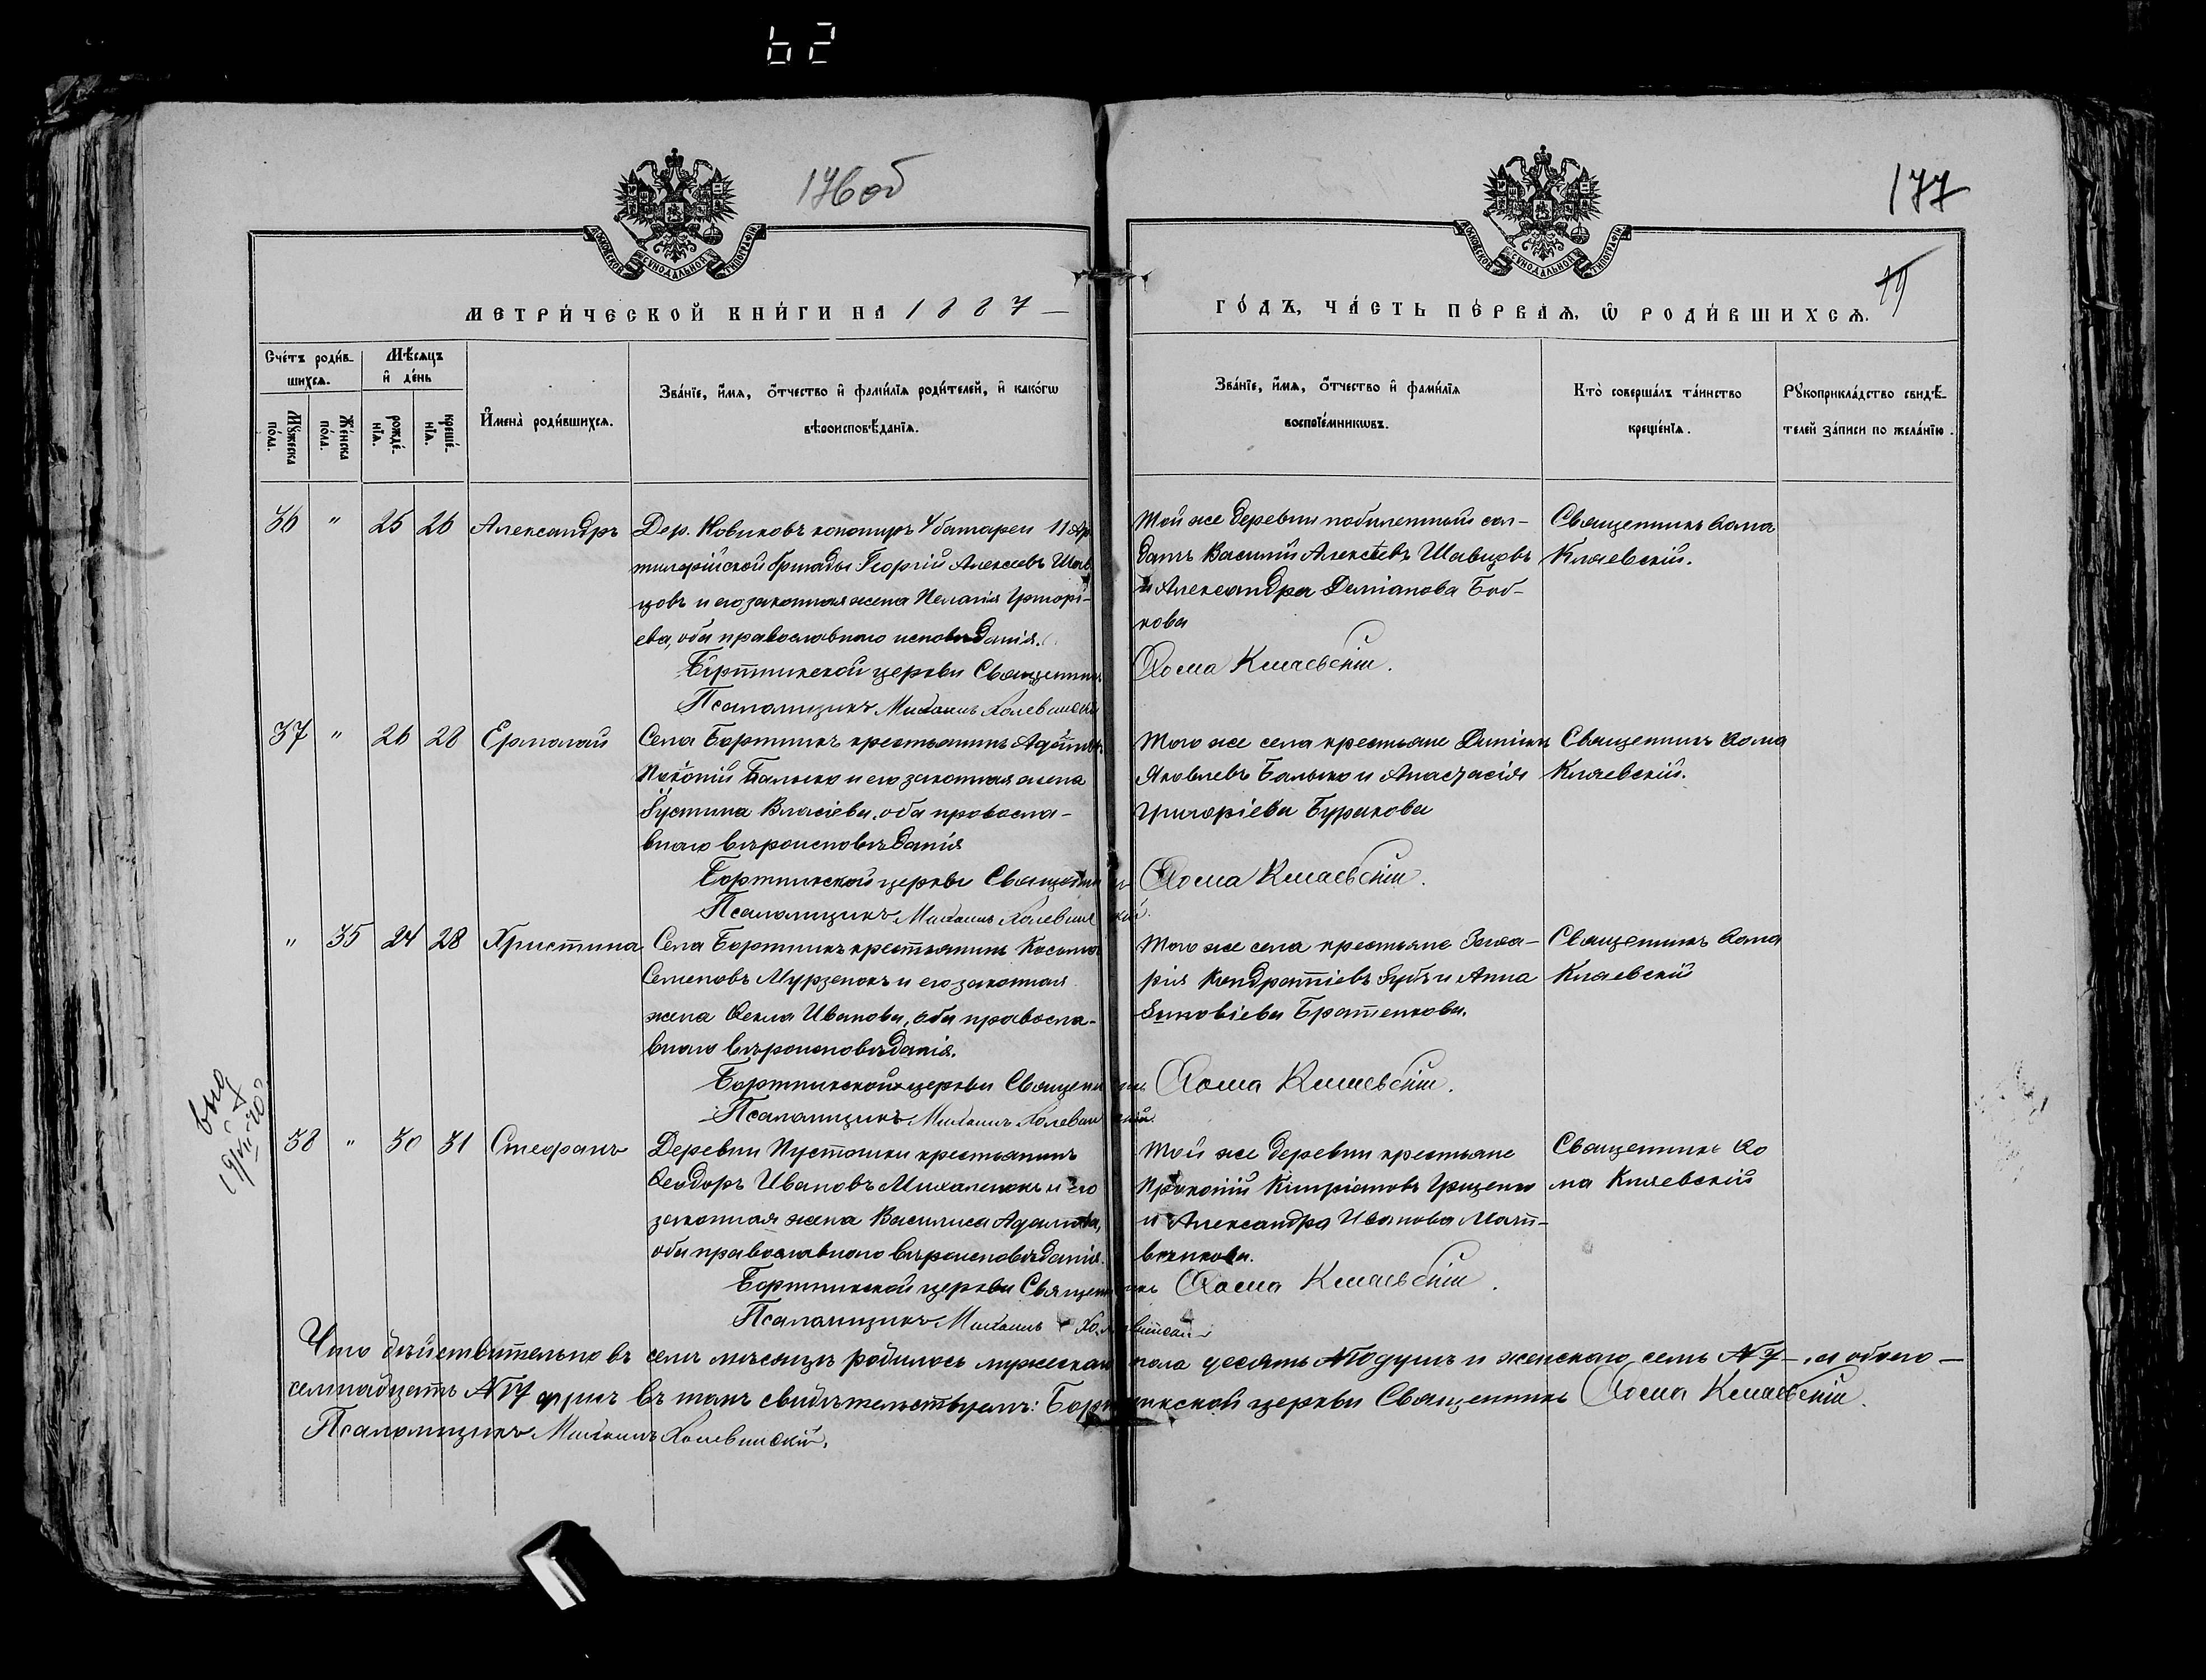 62
176 об
177
19
МОСКОВСКОЙ СѴНОДАЛЬНОЙ ТИПОГРАФІИ
МОСКОВСКОЙ СѴНОДАЛЬНОЙ ТИПОГРАФІИ
МЕТРИ́ЧЕСКОЙ КНИ́ГИ НА 1887 —
ГО́ДЪ, ЧА́СТЬ ПЕ́РВАѦ, Ѡ РОДИ́ВШИХСѦ.
Сче́тъ роди́в-
шихсѧ.
Мѣ́сѧцъ
и҆ де́нь
Мꙋ́жеска
по́ла.
Же́нска
по́ла.
рожде́-
нїѧ.
креще́-
нїѧ.
И҆мена̀ роди́вшихсѧ.
Зва́нїе, и҆́мѧ, ѻ҆́тчество и҆ фами́лїѧ роди́телей, и҆ како́гѡ
вѣроисповѣ́данїѧ.
Зва́нїе, и҆́мѧ, ѻ҆́тчество и҆ фами́лїѧ
воспїе́мникѡвъ.
Кто̀ соверша́лъ та́инство
креще́нїѧ.
Рꙋкоприкла́дство свидѣ́-
телей за́писи по жела́нїю.
36 " 25 26 Александръ
Дер. Новиковъ канониръ 4 батареи 11 Ар
тилерійской бригады Георгій Алексѣевъ Шав
цовъ и его законная жена Пелагія Григорі-
ева, оба православнаго исповѣданія.
Бортникской церкви Священникъ
Псаломщикъ Михаилъ Холевинскій
Той же деревни побилетный сол-
датъ Василій Алексѣевъ Шавцовъ
и Александра Даміанова Боб-
кова
Ѳома Княевскій.
Священникъ Ѳома
Княевскій.
37 " 26 28 Ермолай
Села Бортникъ крестьянинъ
Балыко и его законная жена
Іустина Власіева, оба правосла-
внаго вѣроисповѣданія
Бортникской церкви Священникъ
Псаломщикъ Михаилъ Холевинскій.
Того же села крестьяне
Яковлевъ Балыко и Анастасія
Григоріева Буракова
Ѳома Княевскій.
Священникъ Ѳома
Княевскій.
" 35 24 28 Христина
Села Бортникъ крестьянинъ Косьма
Семеновъ Мурзенокъ и его законная
жена Ѳекла Иванова, оба правосла-
внаго вѣроисповѣданія.
Бортникской церкви Священникъ
Псаломщикъ Михаилъ Холевинскій
Того же села крестьяне Заха-
рія Кондратіевъ Зубъ и Анна
Зиновіева Братенкова.
Ѳома Княевскій.
Священникъ Ѳома
Княевскій
38 " 30 31 Стефанъ
Деревни Пустошки крестьянинъ
Ѳеодоръ Ивановъ Михаленокъ и его
законная жена Василиса Адамова,
оба православнаго вѣроисповѣданія.
Бортникской церкви Священникъ
Псаломщикъ Михаилъ Холевинскій
Той же деревни крестьяне
Прокопій Кипріановъ Гриценко
и Александра Иванова Мат-
вѣенкова.
Ѳома Княевскій.
Священникъ Ѳо
ма Княевскій
Что дѣйствительно въ семъ мѣсяцѣ родилось мужескаго пола десять №10 душъ и женскаго семь №7 —, а обоего —
семнадцать №17 душъ въ томъ свидѣтельствуемъ: Бортникской церкви Священникъ Ѳома Княевскій.
Псаломщикъ Михаилъ Холевинскій.